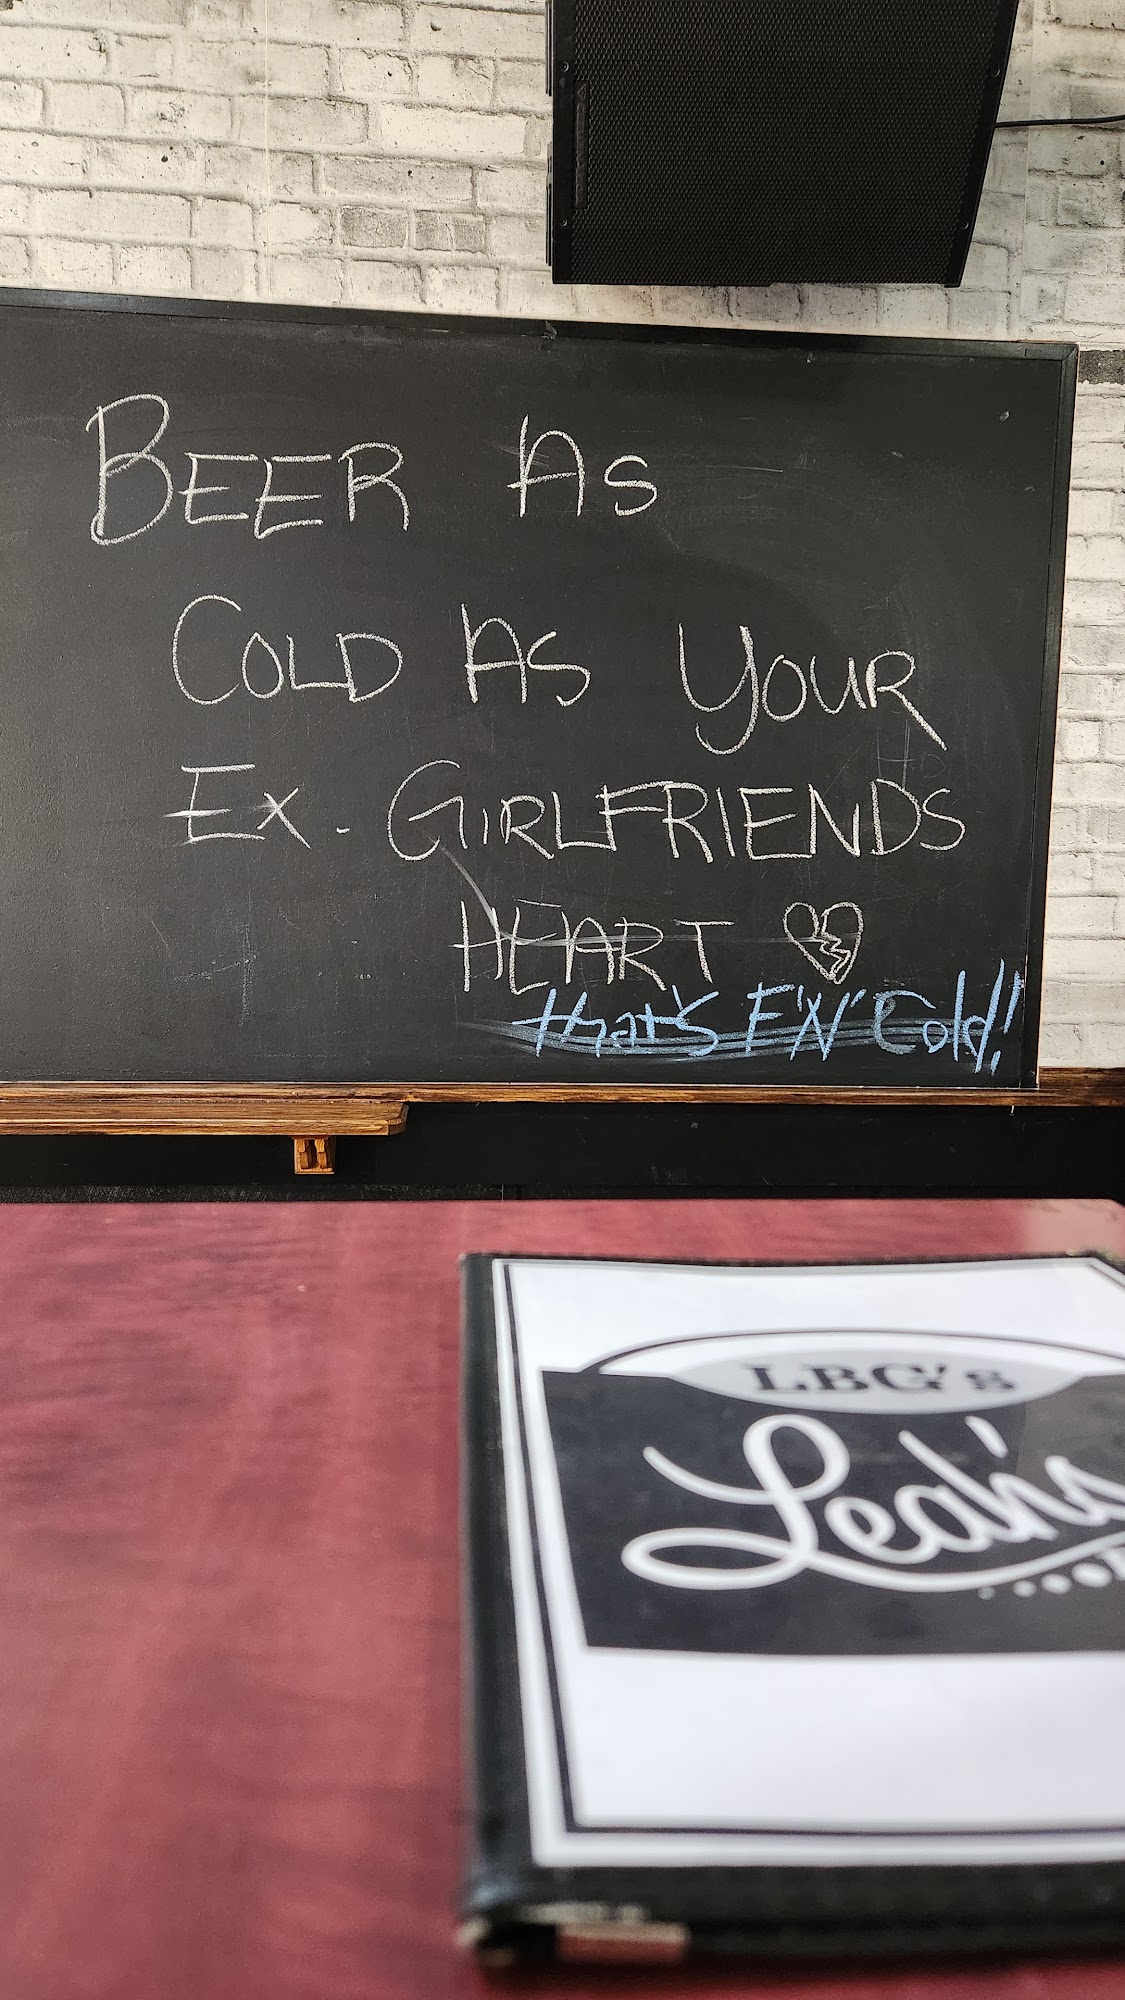 BEER AS
COLD AS YOUR
EX-GIRLFRIENDS
HEART
that's F'N' Cold!
LBG's
Leah's